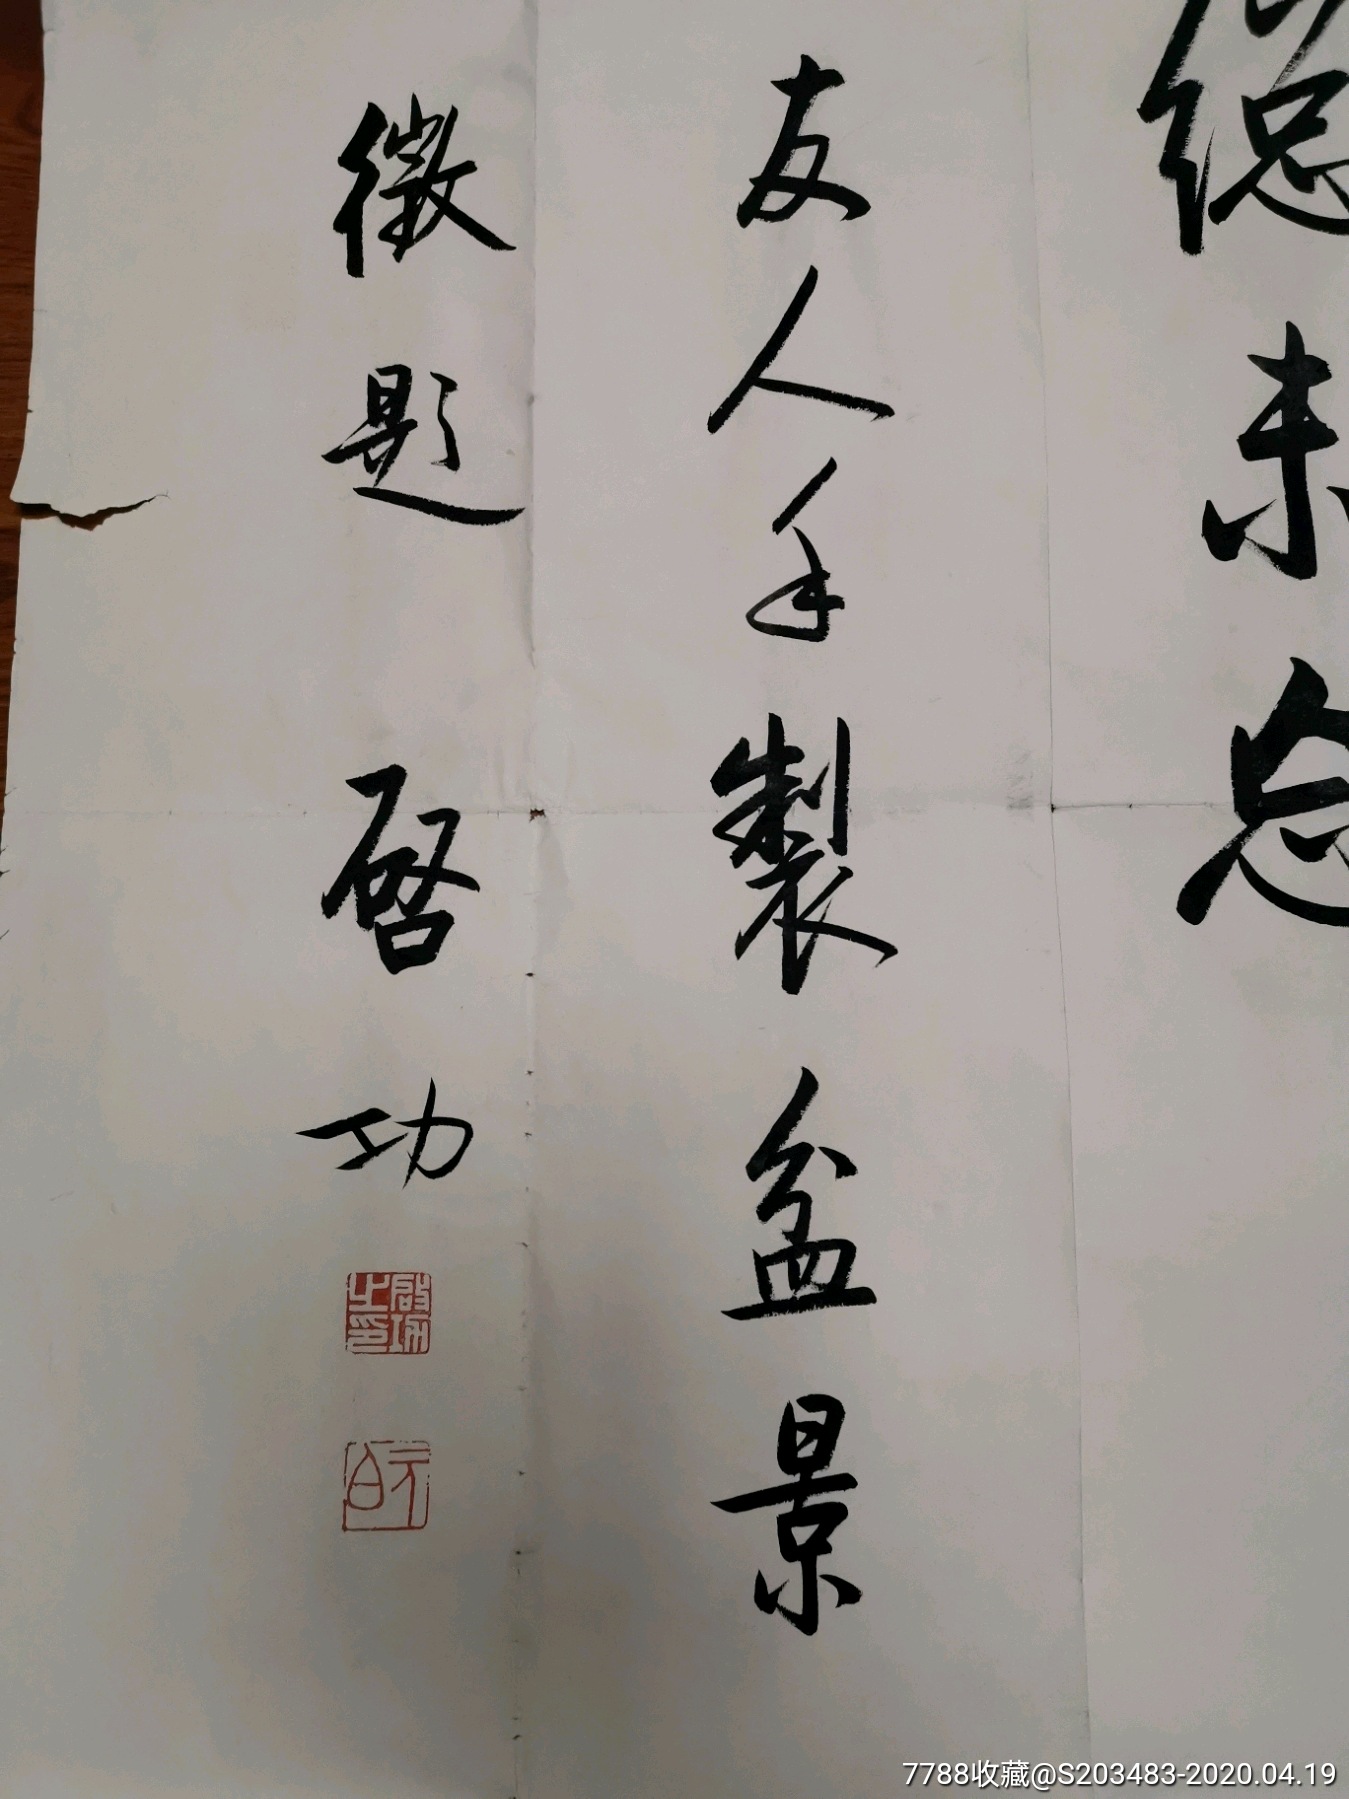 總未忘
友人手製盆景
徵題 啓功
啟功之印
元白
7788收藏@S203483-2020.04.19